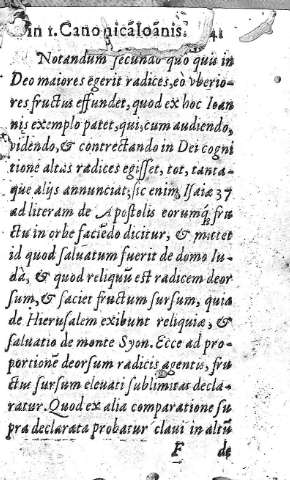 in 1. Canonicã Ioãnis. 41
Notandum secundo quo quis in
Deo maiores egerit radices, eo vberio-
res fructus effundet, quod ex hoc Ioan
nis exemplo patet, qui, cum audiendo,
videndo, & contrectando in Dei cogni
tione altas radices egisset, tot, tanta-
que alijs annunciat; sic enim Isaiæ 37
ad literam de Apostolis eorumq́; fru
ctu in orbe faciẽdo dicitur, & mittet
id quod saluatum fuerit de domo Iu-
dã, & quod reliquũ est radicem deor
sum, & faciet fructum sursum, quia
de Hierusalem exibunt reliquiæ, &
saluatio de monte Syon. Ecce ad pro-
portionẽ deorsum radicis agentis, fru
ctus sursum eleuati sublimitas decla-
ratur. Quod ex alia comparatione su
pra declarata probatur claui in altũ
F de